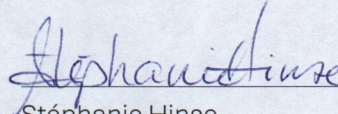 Stéphanie Hinse
Stéphanie Hinse